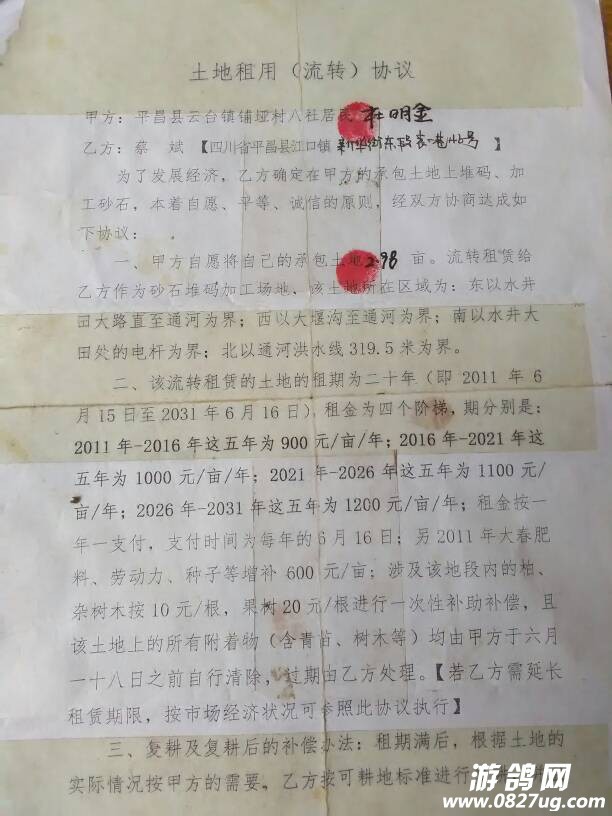 土地租用（流转）协议
甲方：平昌县云台镇铺垭村八社居民 明金
乙方：蔡 斌 【四川省平昌县江口镇 新华街东段 巷 号
为了发展经济，乙方确定在甲方的承包土地上堆码、加
工砂石，本着自愿、平等、诚信的原则，经双方协商达成如
下协议：
一、甲方自愿将自己的承包土地2.98 亩。流转租赁给
乙方作为砂石堆码加工场地，该土地所在区域为：东以水井
田大路直至通河为界；西以大堰沟至通河为界；南以水井大
田处的电杆为界；北以通河洪水线319.5米为界。
二、该流转租赁的土地的租期为二十年（即 2011 年 6
月15日至2031年6月16日），租金为四个阶梯，期分别是：
2011年-2016年这五年为900元/亩/年；2016年-2021年这
五年为1000元/亩/年；2021年-2026年这五年为1100元/
亩/年；2026年-2031年这五年为1200元/亩/年；租金按一
年一支付，支付时间为每年的6月16日；另2011年大春肥
料、劳动力、种子等增补 600 元/亩；涉及该地段内的柏、
杂树木按10元/根，果树20元/根进行一次性补助补偿，且
该土地上的所有附着物（含青苗、树木等）均由甲方于六月
一十八日之前自行清除，过期由乙方处理。【若乙方需延长
租赁期限，按市场经济状况可参照此协议执行】
三、复耕及复耕后的补偿办法：租期满后，根据土地的
实际情况按甲方的需要，乙方按可耕地标准进行
游鸽网
www.0827ug.com